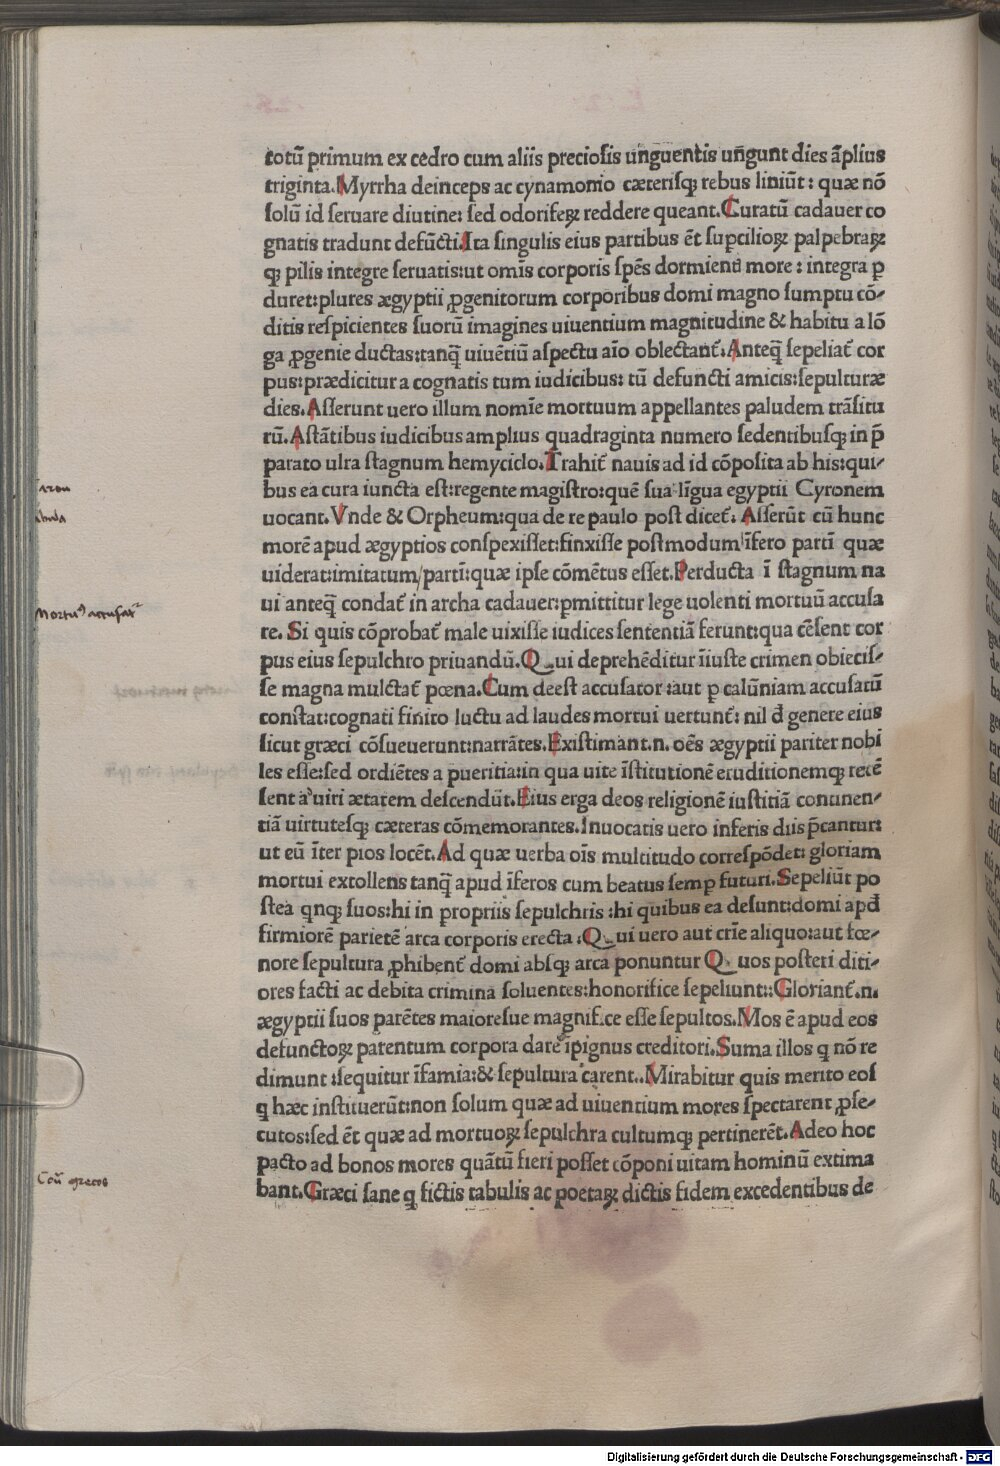 totū primum ex cedro cum aliis preciosis ungūentis ungūnt dies āplius
triginta. Myrrha deinceps ac cynamonio cæterisq; rebus liniūt: quæ nō
solū id seruare diutine: sed odoriferꝝ reddere queant. Curatū cadauer co
gnatis tradunt defūcti. Ita singulis eius partibus ēt supciliorꝝ palpebraꝝ
q; pilis integre seruatis: ut omīs corporis spēs dormienti more: integra p
duret: plures ægyptii ꝓgenitorum corporibus domi magno sumptu cō-
ditis respicientes suorū imagines uiuentium magnitudine & habitu a lō
ga ꝓgenie ductas: tanq̄ uiuētiū aspectu aīo oblectant̄. Anteq̄ sepeliat̄ cor
pus: prædicitur a cognatis tum iudicibus: tū defuncti amicis: sepulturæ
dies. Asserunt uero illum nomīe mortuum appellantes paludem trāsitu
rū. Astātibus iudicibus amplius quadraginta numero sedentibusq; in p̄
parato ulra stagnum hemyciclo. Trahit̄ nauis ad id cōposita ab his: qui-
bus ea cura iuncta est: regente magistro: quē sua līgua egyptii Cyronem
uocant. Vnde & Orpheum: qua de re paulo post dicet̄. Asserūt cū hunc
morē apud ægyptios conspexisset: finxisse postmodum īfero parti quæ
uiderat: imitatum/parti: quæ ipse cōmētus esset. Perducta ī stagnum na
ui anteq̄ condat̄ in archa cadauer: pmittitur lege uolenti mortuū accusa
re. Si quis cōprobat̄ male uixisse iudices sententiā ferunt: qua cēsent cor
pus eius sepulchro priuandū. Qui deprehēditur īiuste crimen obiecis-
se magna mulctat̄ pœna. Cum deest accusator: aut p calūniam accusatū
constat: cognati finito luctu ad laudes mortui uertunt̄: nil đ genere eius
sicut græci cōsueuerunt: narrātes. Existimant .n. oēs ægyptii pariter nobi
les esse: sed ordiētes a pueritia: in qua uite īstitutionē eruditionemq; recē
sent a uiri ætatem descendūt. Eius erga deos religionē iustitiā continen-
tiā uirtutesq; cæteras cōmemorantes. Inuocatis uero inferis diis p̄cantur:
ut eū īter pios locēt. Ad quæ uerba oīs multitudo correspōdet: gloriam
mortui extollens tanq̄ apud īferos cum beatus semp futuri. Sepeliūt po
stea qnq; suos: hi in propriis sepulchris: hi quibus ea desunt: domi apđ
firmiorē parietē arca corporis erecta: Qui uero aut crīe aliquo: aut fœ-
nore sepultura ꝓhibent̄ domi absq; arca ponuntur Quos posteri diti-
ores facti ac debita crimina soluentes: honorifice sepeliunt:: Gloriant̄ .n.
ægyptii suos parētes maioresue magnifice esse sepultos. Mos ē apud eos
defunctorꝝ parentum corpora dare īpignus creditori. Suma illos q nō re
dimunt: sequitur īfamia: & sepultura carent.. Mirabitur quis merito eos
q hæc instituerūt: non solum quæ ad uiuentium mores spectarent ꝓse-
cutos: sed ēt quæ ad mortuoꝝ sepulchra cultumq; pertinerēt. Adeo hoc
pacto ad bonos mores quātū fieri posset cōponi uitam hominū extima
bant. Græci sane q fictis tabulis ac poetaꝝ dictis fidem excedentibus de
Mortuꝰ accusat̄
græcos
Digitalisierung gefördert durch die Deutsche Forschungsgemeinschaft - DFG